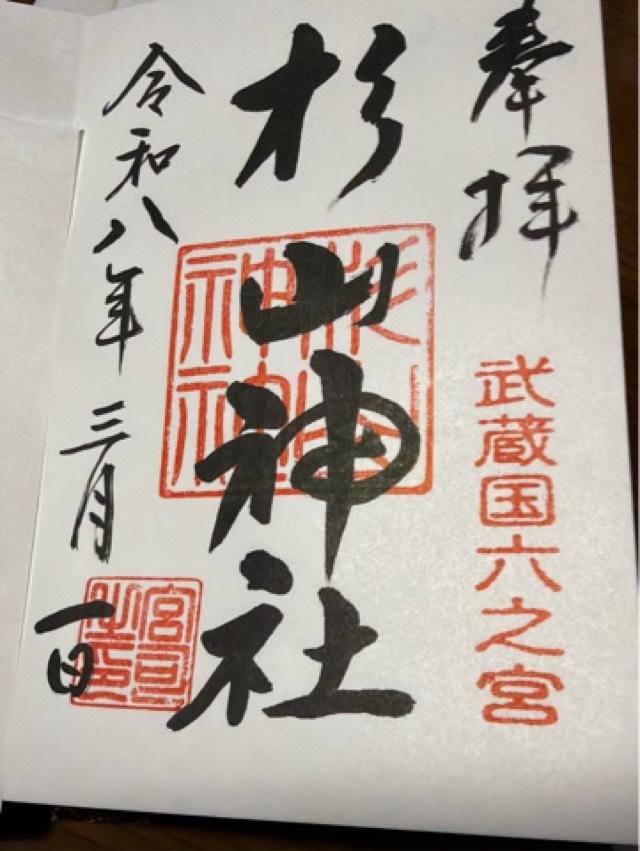 奉拝
武蔵国六之宮
杉山神社
令和八年三月一日
宮司之印